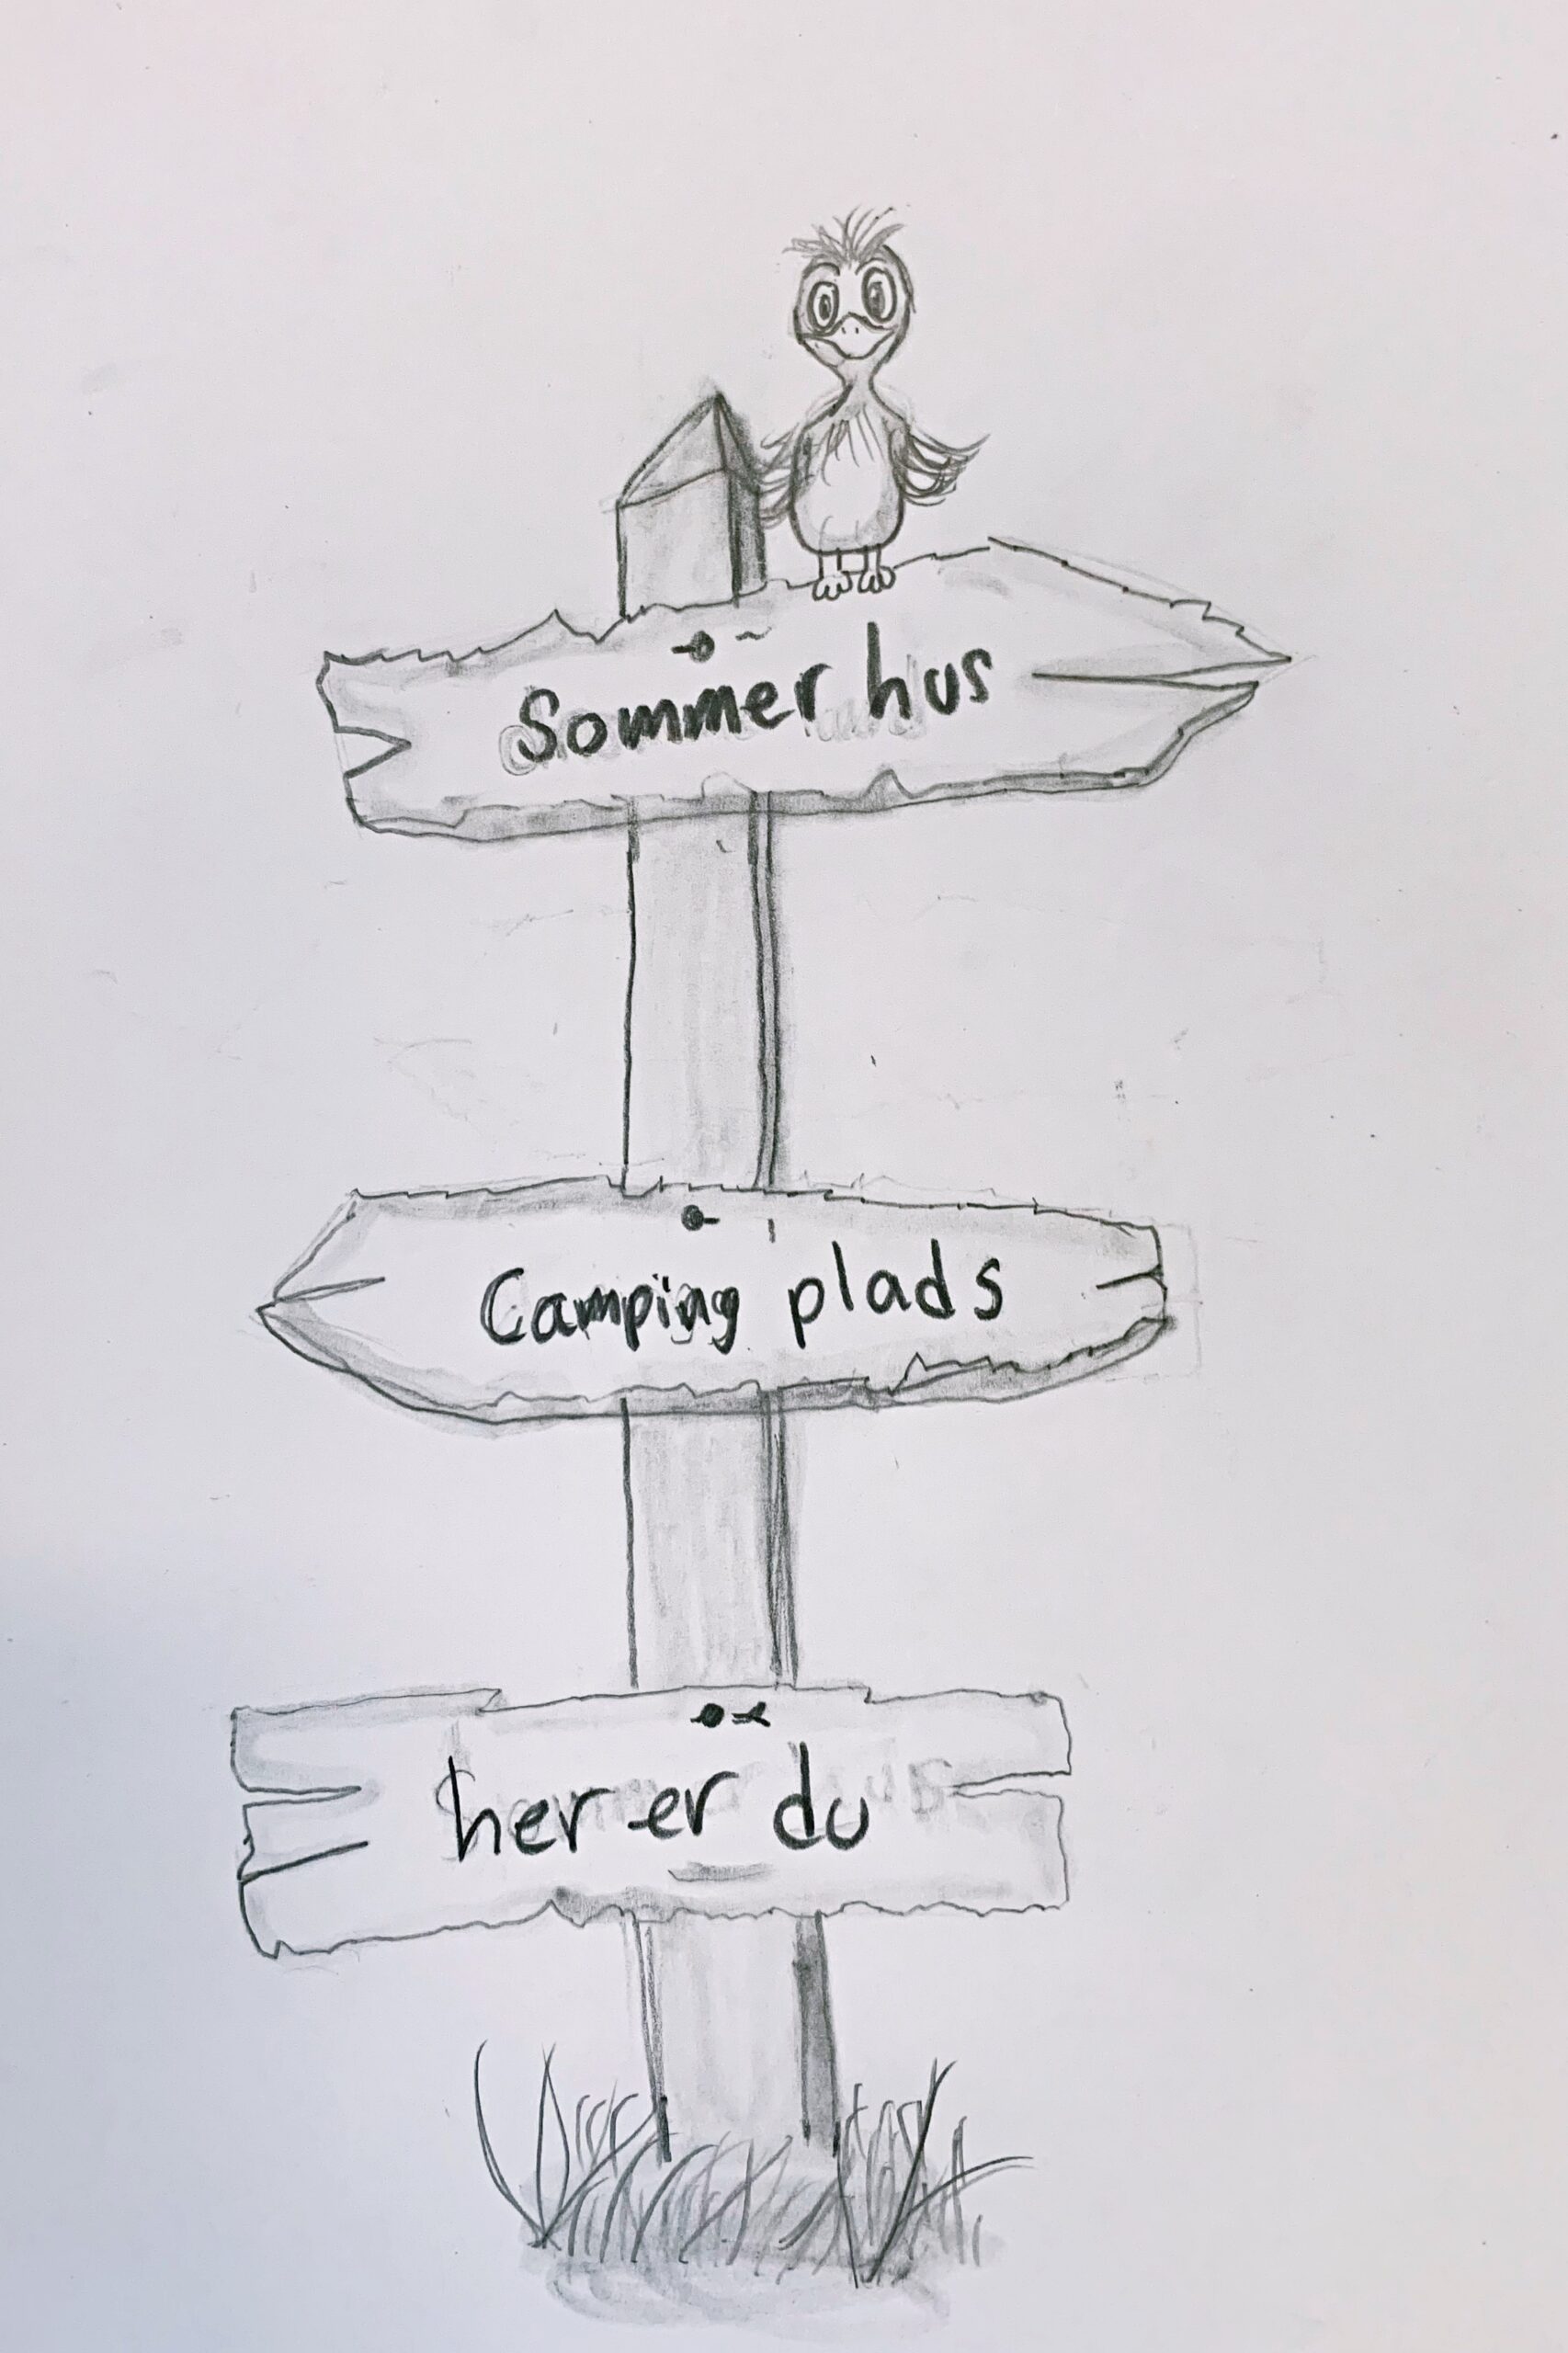 Sommer hus
Camping plads
her er du